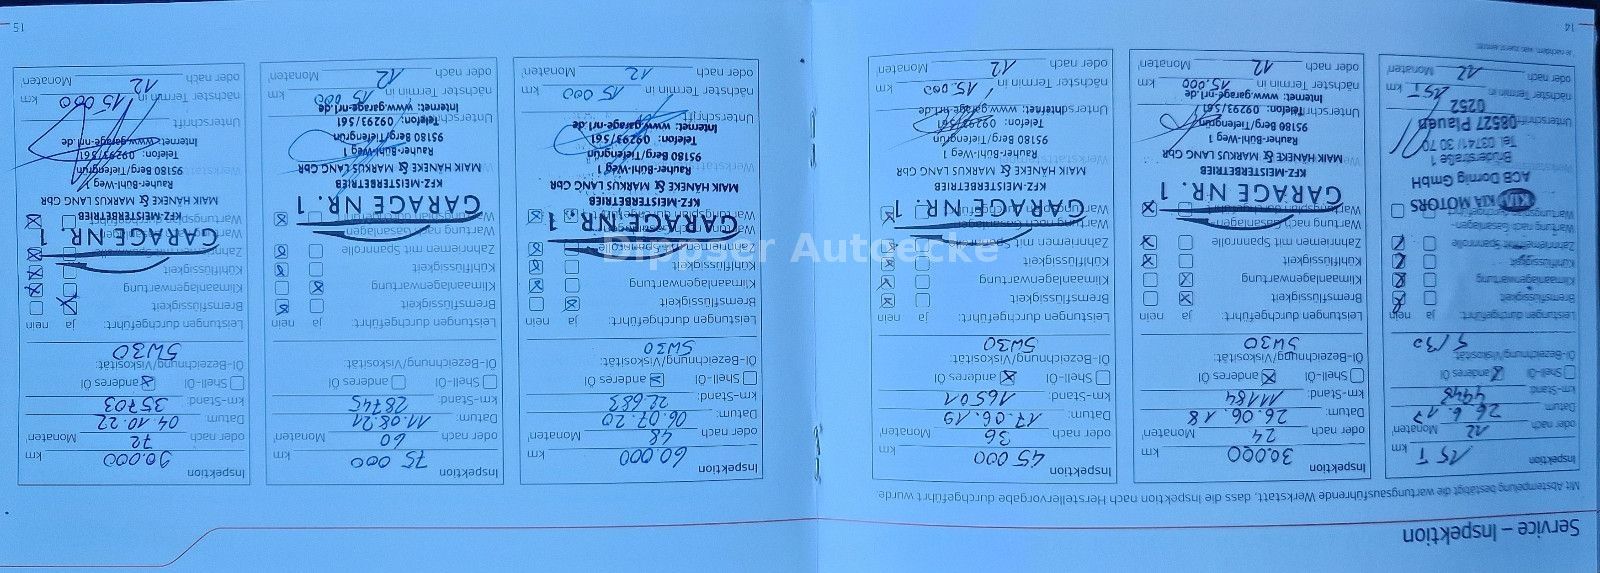 Service – Inspektion
Mit Abstempelung bestätigt die wartungsausführende Werkstatt, dass die Inspektion nach Herstellervorgabe durchgeführt wurde.
Inspektion 15 T km
oder nach 12 Monaten
Datum: 26.6.17
km-Stand: 4448
Shell-Öl anderes Öl
Öl-Bezeichnung/Viskosität:
5/30
Leistungen durchgeführt: ja nein
Bremsflüssigkeit
Klimaanlagenwartung
Kühlflüssigkeit
Zahnriemen mit Spannrolle
Wartung nach Gasanlagen-
KIA KIA MOTORS
ACB Dornig GmbH
Brüderstraße 1
Tel. 03741/ 30 70
08527 Plauen
0252
nächster Termin in 15T km
oder nach 12 Monaten
Inspektion 30.000 km
oder nach 24 Monaten
Datum: 26.06.18
km-Stand: 11184
Shell-Öl anderes Öl
Öl-Bezeichnung/Viskosität:
5W30
Leistungen durchgeführt: ja nein
Bremsflüssigkeit
Klimaanlagenwartung
Kühlflüssigkeit
Zahnriemen mit Spannrolle
Wartung nach Gasanlagen-
GARAGE NR. 1
KFZ-MEISTERBETRIEB
MAIK HÄNEKE & MARKUS LANG GbR
Rauher-Bühl-Weg 1
95180 Berg/Tiefengrün
Telefon: 09293/561
Internet: www.garage-nr1.de
nächster Termin in 15.000 km
oder nach 12 Monaten
Inspektion 45 000 km
oder nach 36 Monaten
Datum: 17.06.19
km-Stand: 16501
Shell-Öl anderes Öl
Öl-Bezeichnung/Viskosität:
5W30
Leistungen durchgeführt: ja nein
Bremsflüssigkeit
Klimaanlagenwartung
Kühlflüssigkeit
Zahnriemen mit
Wartung nach
GARAGE NR. 1
KFZ-MEISTERBETRIEB
MAIK HÄNEKE & MARKUS LANG GbR
Rauher-Bühl-Weg 1
95180 Berg/Tiefengrün
Telefon: 09293/561
Internet: www.garage-nr1.de
nächster Termin in 15.000 km
oder nach 12 Monaten
14
Inspektion 60 000 km
oder nach 48 Monaten
Datum: 06.07.20
km-Stand: 22.683
Shell-Öl anderes Öl
Öl-Bezeichnung/Viskosität:
5W30
Leistungen durchgeführt: ja nein
Bremsflüssigkeit
Klimaanlagenwartung
Kühlflüssigkeit
Zahnriemen mit Spannrolle
GARAGE NR. 1
KFZ-MEISTERBETRIEB
MAIK HÄNEKE & MARKUS LANG GbR
Rauher-Bühl-Weg 1
95180 Berg/Tiefengrün
Telefon: 09293/561
Internet: www.garage-nr1.de
nächster Termin in 15 000 km
oder nach 12 Monaten
Inspektion 75 000 km
oder nach 60 Monaten
Datum: 11.08.21
km-Stand: 28745
Shell-Öl anderes Öl
Öl-Bezeichnung/Viskosität:
Leistungen durchgeführt: ja nein
Bremsflüssigkeit
Klimaanlagenwartung
Kühlflüssigkeit
Zahnriemen mit Spannrolle
Wartung nach Gasanlagen-
GARAGE NR. 1
KFZ-MEISTERBETRIEB
MAIK HÄNEKE & MARKUS LANG GbR
Rauher-Bühl-Weg 1
95180 Berg/Tiefengrün
Telefon: 09293/561
Internet: www.garage-nr1.de
nächster Termin in 15 000 km
oder nach 12 Monaten
Inspektion 90.000 km
oder nach 72 Monaten
Datum: 04.10.22
km-Stand: 35703
Shell-Öl anderes Öl
Öl-Bezeichnung/Viskosität:
5W30
Leistungen durchgeführt: ja nein
Bremsflüssigkeit
Klimaanlagenwartung
Kühlflüssigkeit
Zahnriemen
GARAGE NR. 1
KFZ-MEISTERBETRIEB
MAIK HÄNEKE & MARKUS LANG GbR
Rauher-Bühl-Weg 1
95180 Berg/Tiefengrün
Telefon: 09293/561
Internet: www.garage-nr1.de
Unterschrift
nächster Termin in 15 000 km
oder nach 12 Monaten
15
Dippser Autoecke